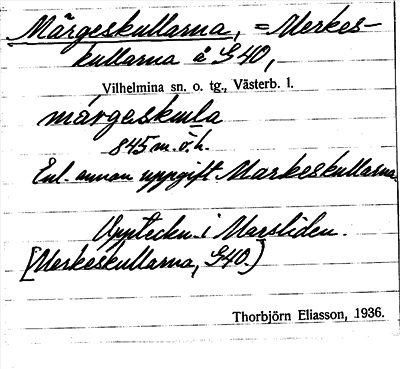 Märgeskullarna, = Merkes-
kullarna å G40,
Vilhelmina sn. o. tg., Västerb. l.
märgeskula
845 m. ö. h.
Enl. annan uppgift Markeskullarna.
Uppteckn. i Marsliden.
[Merkeskullarna, G40.]
Thorbjörn Eliasson, 1936.